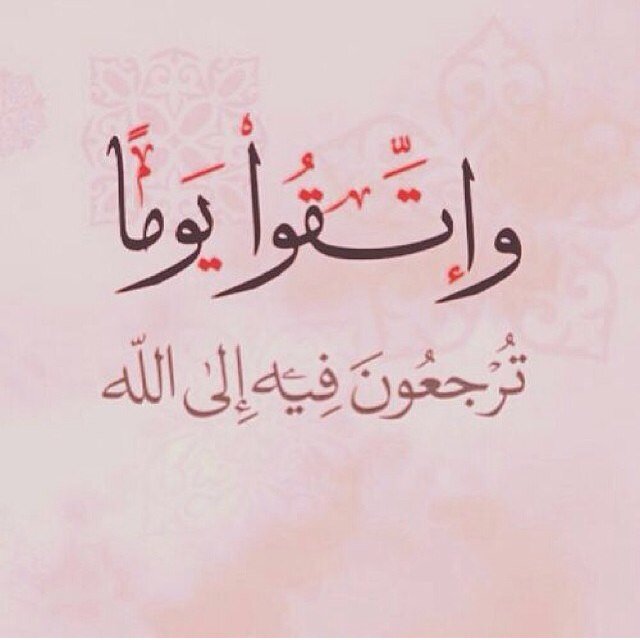 وإتَّقُوا يَوماً
تُرْجعُونَ فِيه إِلىٰ اللّه